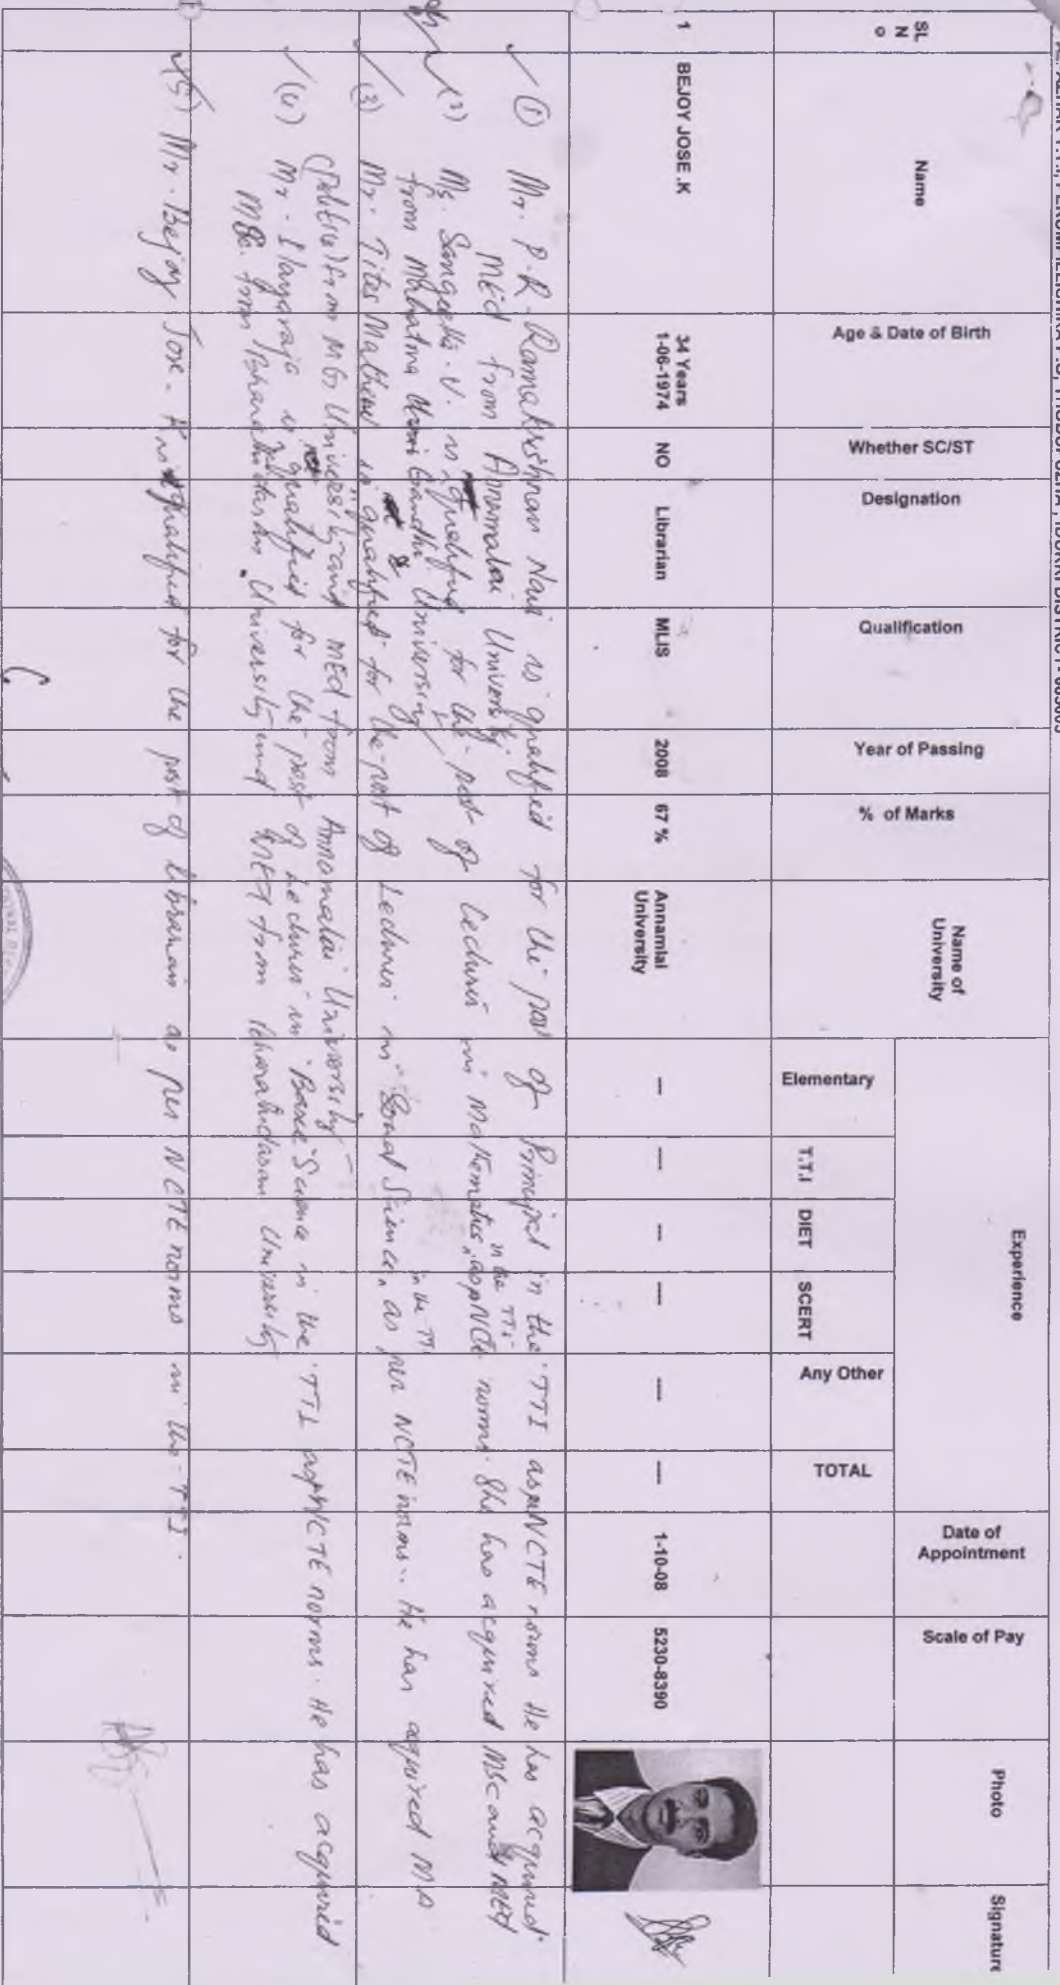 SL
N
o
Name
Age & Date of Birth
Whether SC/ST
Designation
Qualification
Year of Passing
% of Marks
Name of
University
Experience
Elementary
T.T.I
DIET
SCERT
Any Other
TOTAL
Date of
Appointment
Scale of Pay
Photo
Signature
1
BEJOY JOSE .K
34 Years
1-06-1974
NO
Librarian
MLIS
2008
67 %
Annamlai
University
---
---
---
---
---
---
1-10-08
5230-8390
(1) Mr. P.R. Ramakrishnan Nair is qualified for the post of Principal in the TTI as per NCTE norms He has acquired
MEd from Annamalai University
(2) Ms. Sangeetha. V. is qualified for the post of Lecturer in Mathematics, in the TTI as per NCTE norms. She has acquired MSc and MEd
from Mahatma Gandhi University
(3) Mr. Tites Mathew is qualified for the post of Lecturer in Social Science, in the TTI as per NCTE norms.. He has acquired MA
(Politics) from MG University and MEd from Annamalai University
(4) Mr. Ilayaraja is qualified for the post of Lecturer in Basic Science in the TTI as per NCTE norms. He has acquired
MSc. from Bharathidasan University and MEd from Bharathidasan University
(5) Mr. Bejoy Jose. K is qualified for the post of Librarian as per NCTE norms in the TTI.